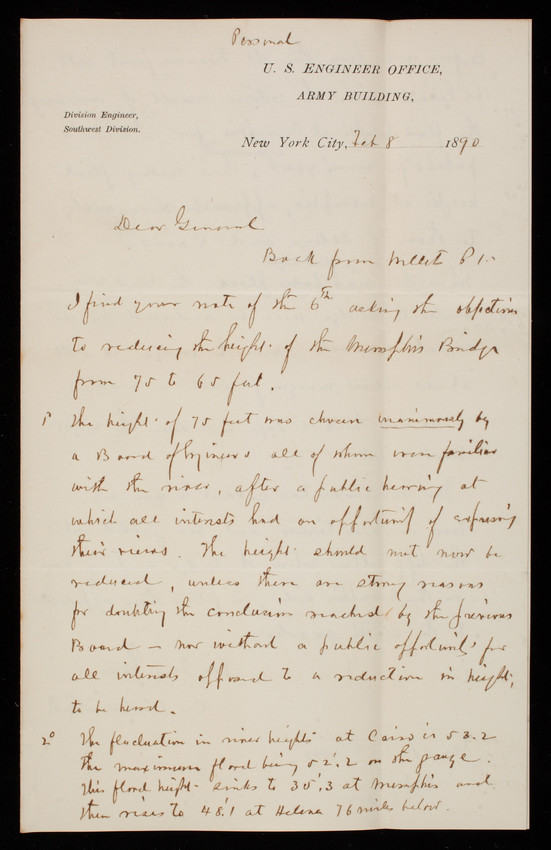 Personal
U. S. ENGINEER OFFICE,
ARMY BUILDING,
Division Engineer,
Southwest Division.
New York City, Feb 8 1890
Dear General
Back from Willets Pt.
I find your note of the 6th asking the objections
to reducing the height of the Memphis Bridge
from 75 to 65 feet.
1o The height of 75 feet was chosen unanimously by
a Board of Engineers all of whom were familiar
with the river, after a public hearing at
which all interests had an opportunity of expressing
their views. The height should not now be
reduced, unless there are strong reasons
for doubting the conclusion reached by the previous
Board – nor without a public opportunity for
all interests opposed to a reduction in height,
to be heard.
2o The fluctuation in river heights at Cairo is 53.2
the maximum flood being 52'.2 on the gauge.
This flood height sinks to 35'.3 at Memphis and
then rises to 48'.1 at Helena 76 miles below.